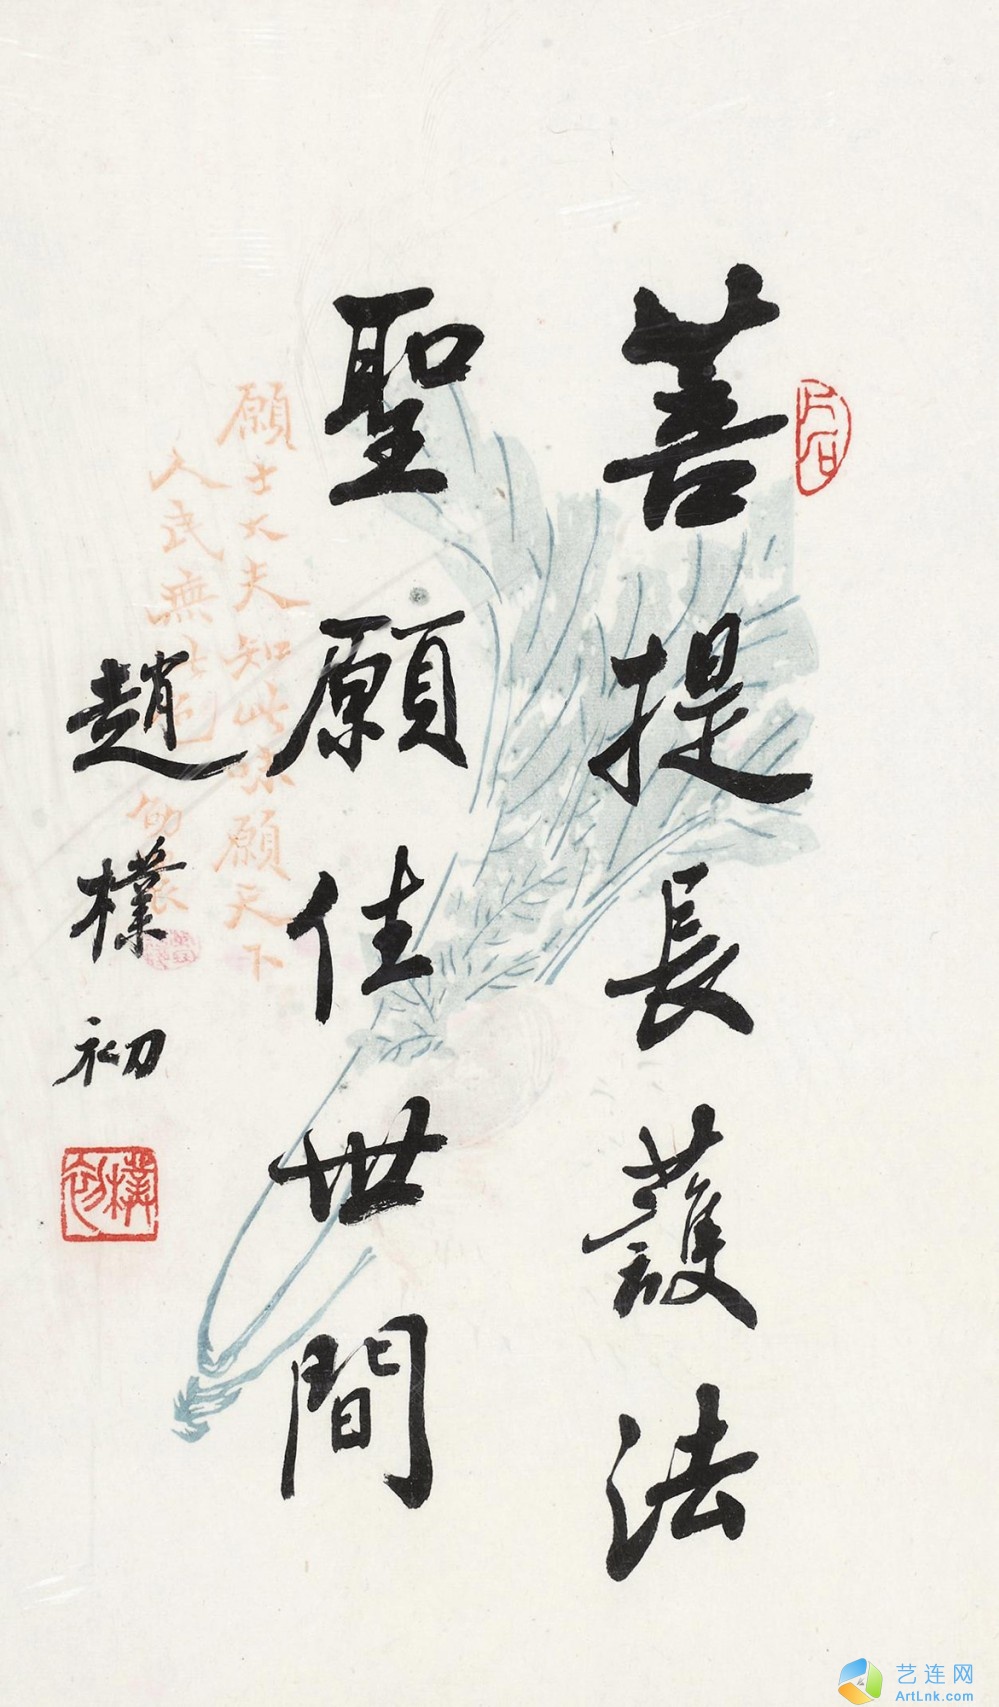 菩提長護法
聖願住世間
趙樸初
樸初
片石
願士大夫知此味願天下
人民無此色
艺连网
ArtLnk.com